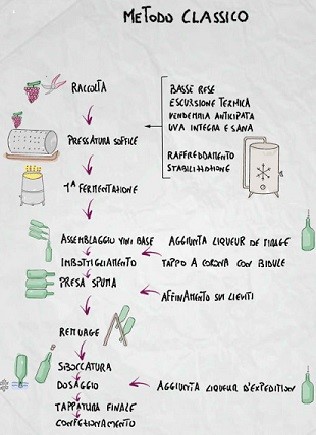 METODO CLASSICO
RACCOLTA
BASSE RESE
ESCURSIONE TERMICA
VENDEMMIA ANTICIPATA
UVA INTEGRA E SANA
PRESSATURA SOFFICE
RAFFREDDAMENTO
STABILIZZAZIONE
1ª FERMENTAZIONE
ASSEMBLAGGIO VINO BASE
AGGIUNTA LIQUEUR DE TIRAGE
IMBOTTIGLIAMENTO
TAPPO A CORONA CON BIDULE
PRESA SPUMA
AFFINAMENTO SUI LIEVITI
REMUAGE
SBOCCATURA
DOSAGGIO
AGGIUNTA LIQUEUR D'EXPEDITION
TAPPATURA FINALE
CONFEZIONAMENTO